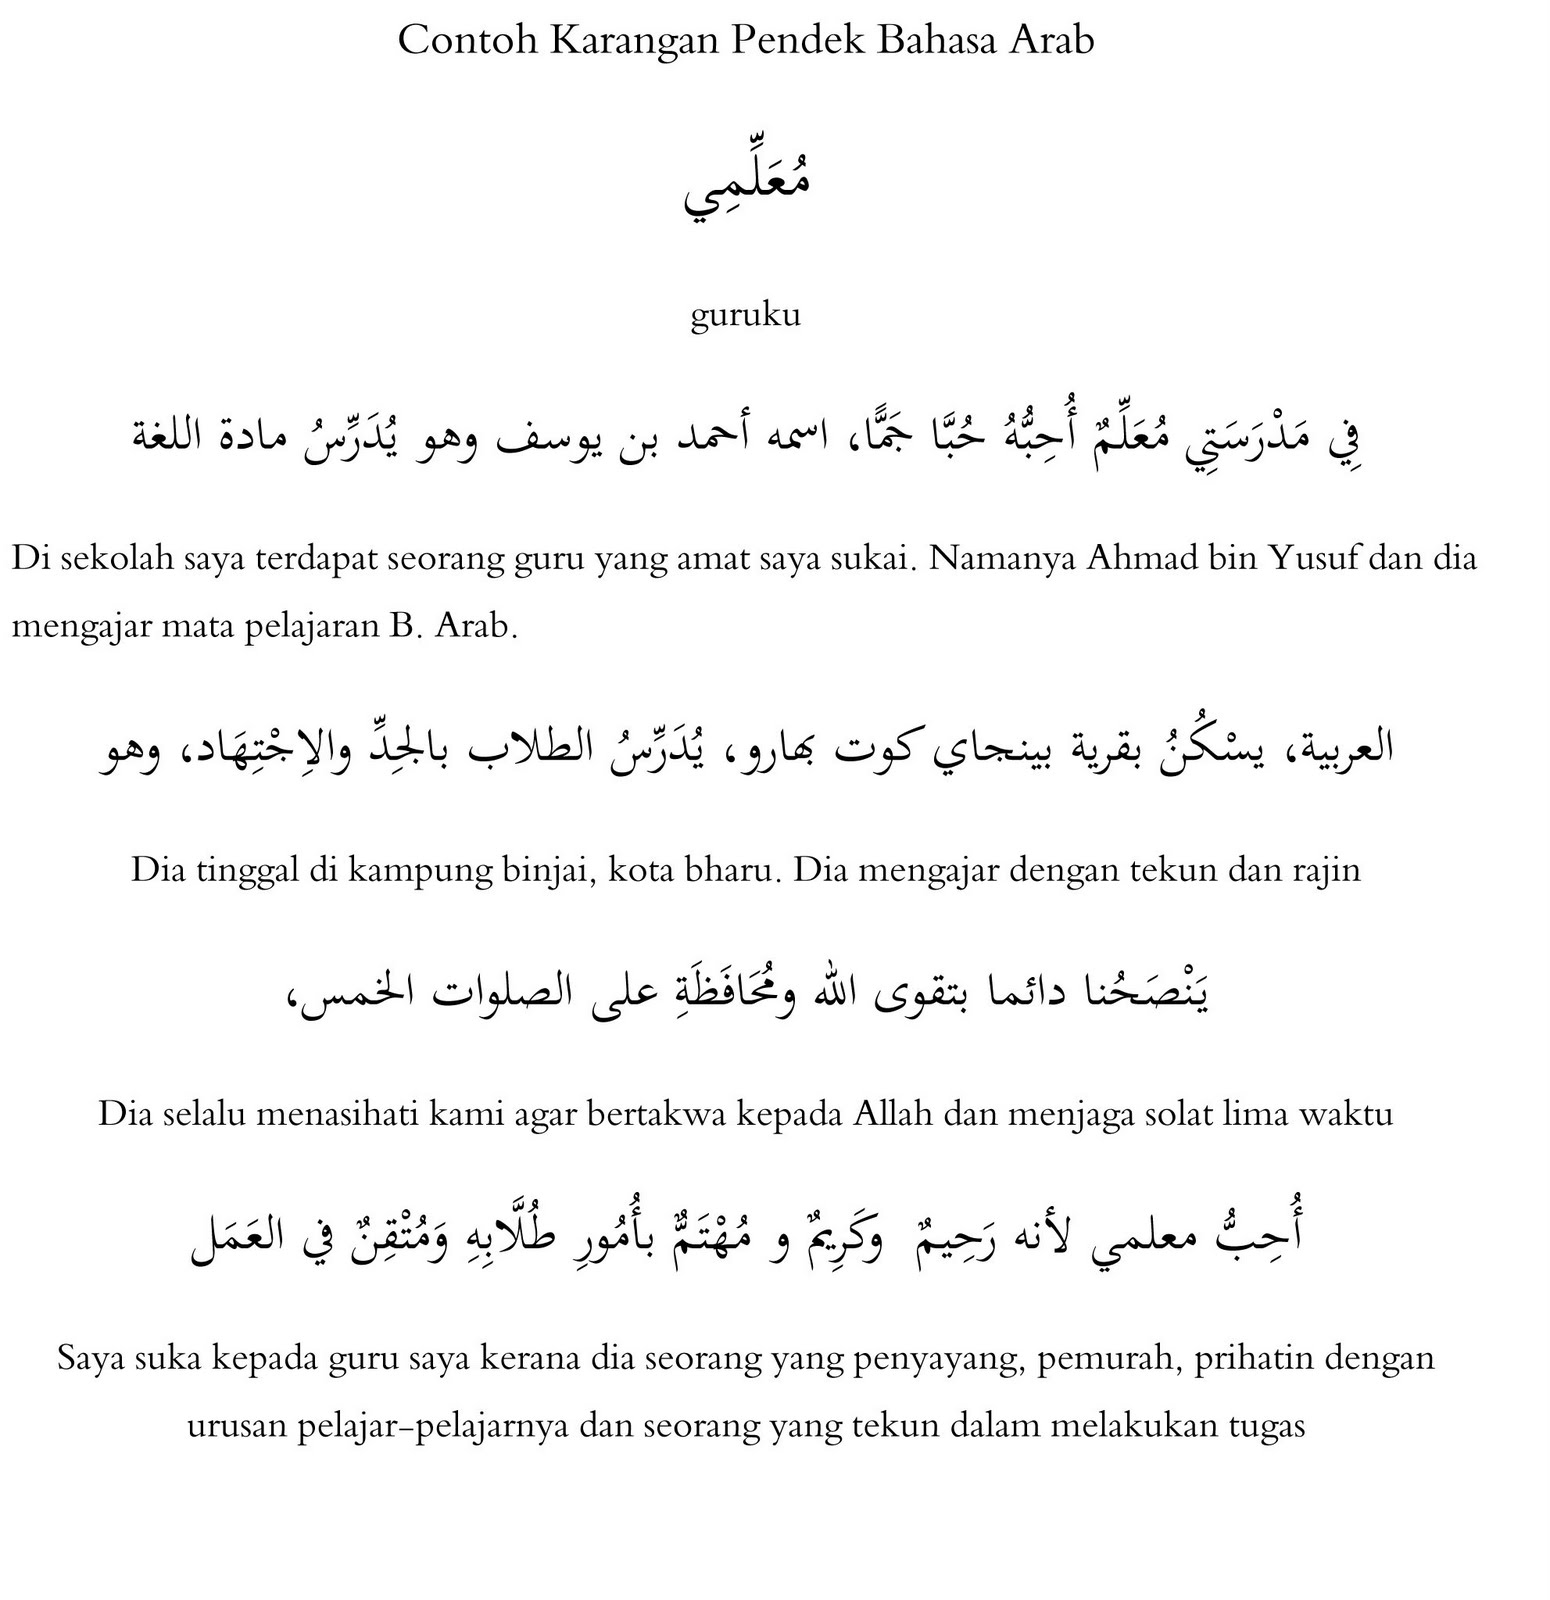 Contoh Karangan Pendek Bahasa Arab
مُعَلِّمِي
guruku
فِي مَدْرَسَتِي مُعَلِّمٌ أُحِبُّهُ حُبًّا جَمًّا، اسمه أحمد بن يوسف وهو يُدَرِّسُ مادة اللغة
Di sekolah saya terdapat seorang guru yang amat saya sukai. Namanya Ahmad bin Yusuf dan dia
mengajar mata pelajaran B. Arab.
العربية، يسْكُنُ بقرية بينجاي كوت بهارو، يُدَرِّسُ الطلاب بالجِدِّ والاِجْتِهَاد، وهو
Dia tinggal di kampung binjai, kota bharu. Dia mengajar dengan tekun dan rajin
يَنْصَحُنا دائما بتقوى الله ومُحَافَظَةِ على الصلوات الخمس،
Dia selalu menasihati kami agar bertakwa kepada Allah dan menjaga solat lima waktu
أُحِبُّ معلمي لأنه رَحِيمٌ وكَرِيمٌ و مُهْتَمٌّ بأُمُورِ طُلَّابِهِ وَمُتْقِنٌ في العَمَل
Saya suka kepada guru saya kerana dia seorang yang penyayang, pemurah, prihatin dengan
urusan pelajar-pelajarnya dan seorang yang tekun dalam melakukan tugas